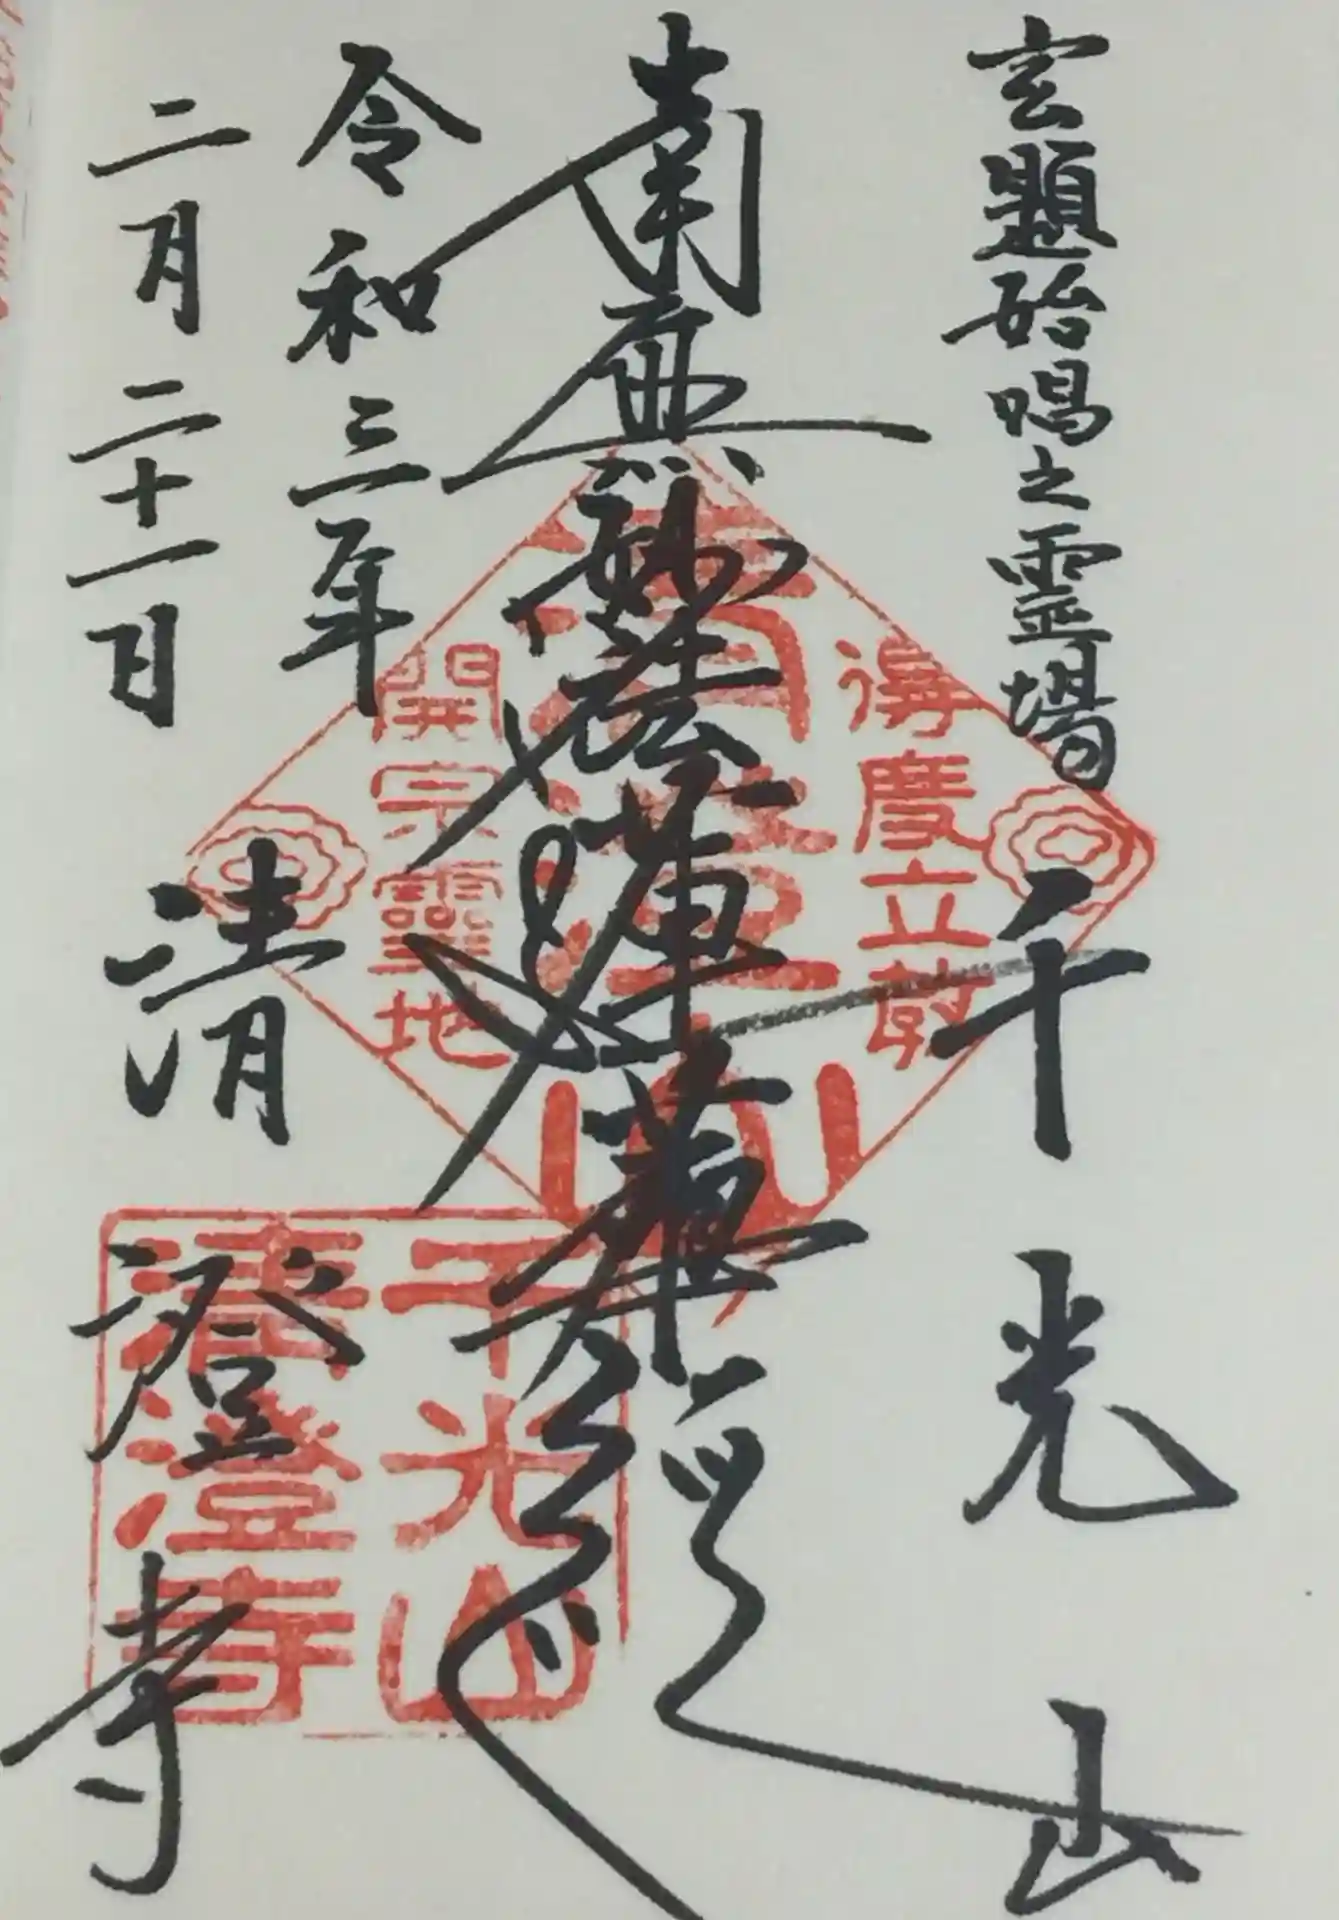 玄題始唱之霊場
千光山
南無妙法蓮華経
令和三年
二月二十一日
清澄寺
得度立教
清澄山
開宗靈地
千光山
清澄寺